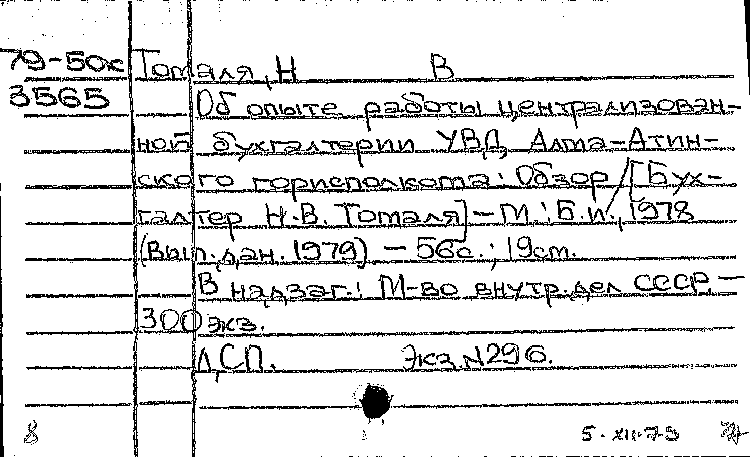 79-50к Томаля, Н В
3565 Об опыте работы централизован-
ной бухгалтерии УВД Алма-Атин-
ского горисполкома: Обзор / [Бух-
галтер Н.В. Томаля] - М.: Б.и., 1978
(Вып. дан. 1979) - 56с.; 19см.
В надзаг.: М-во внутр. дел СССР. -
300 экз.
ДСП. Экз. N 296.
8 5. XII. 79